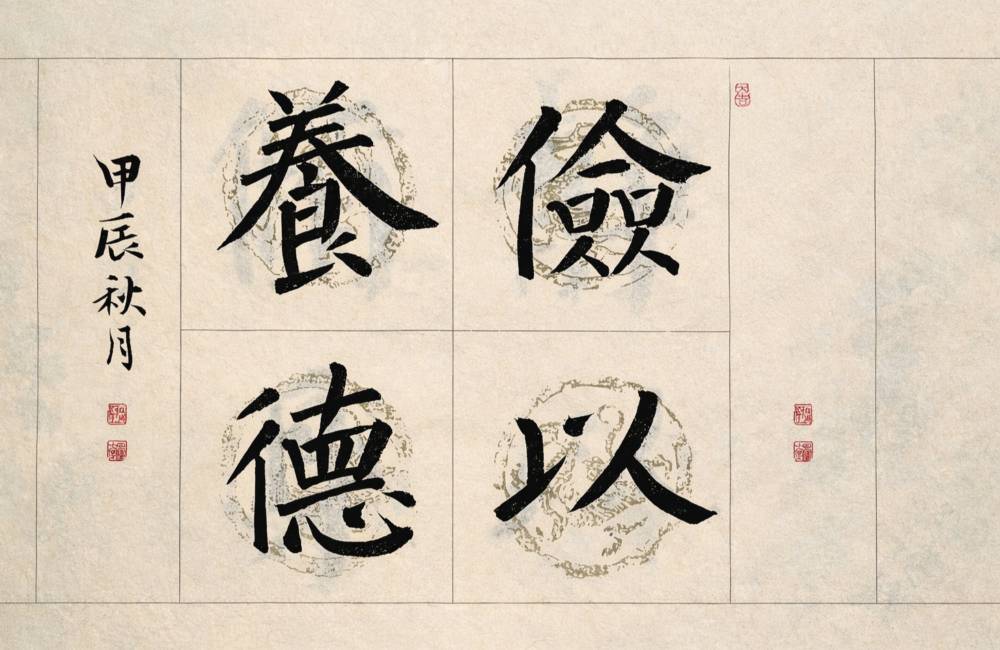 儉以
養德
甲辰秋月